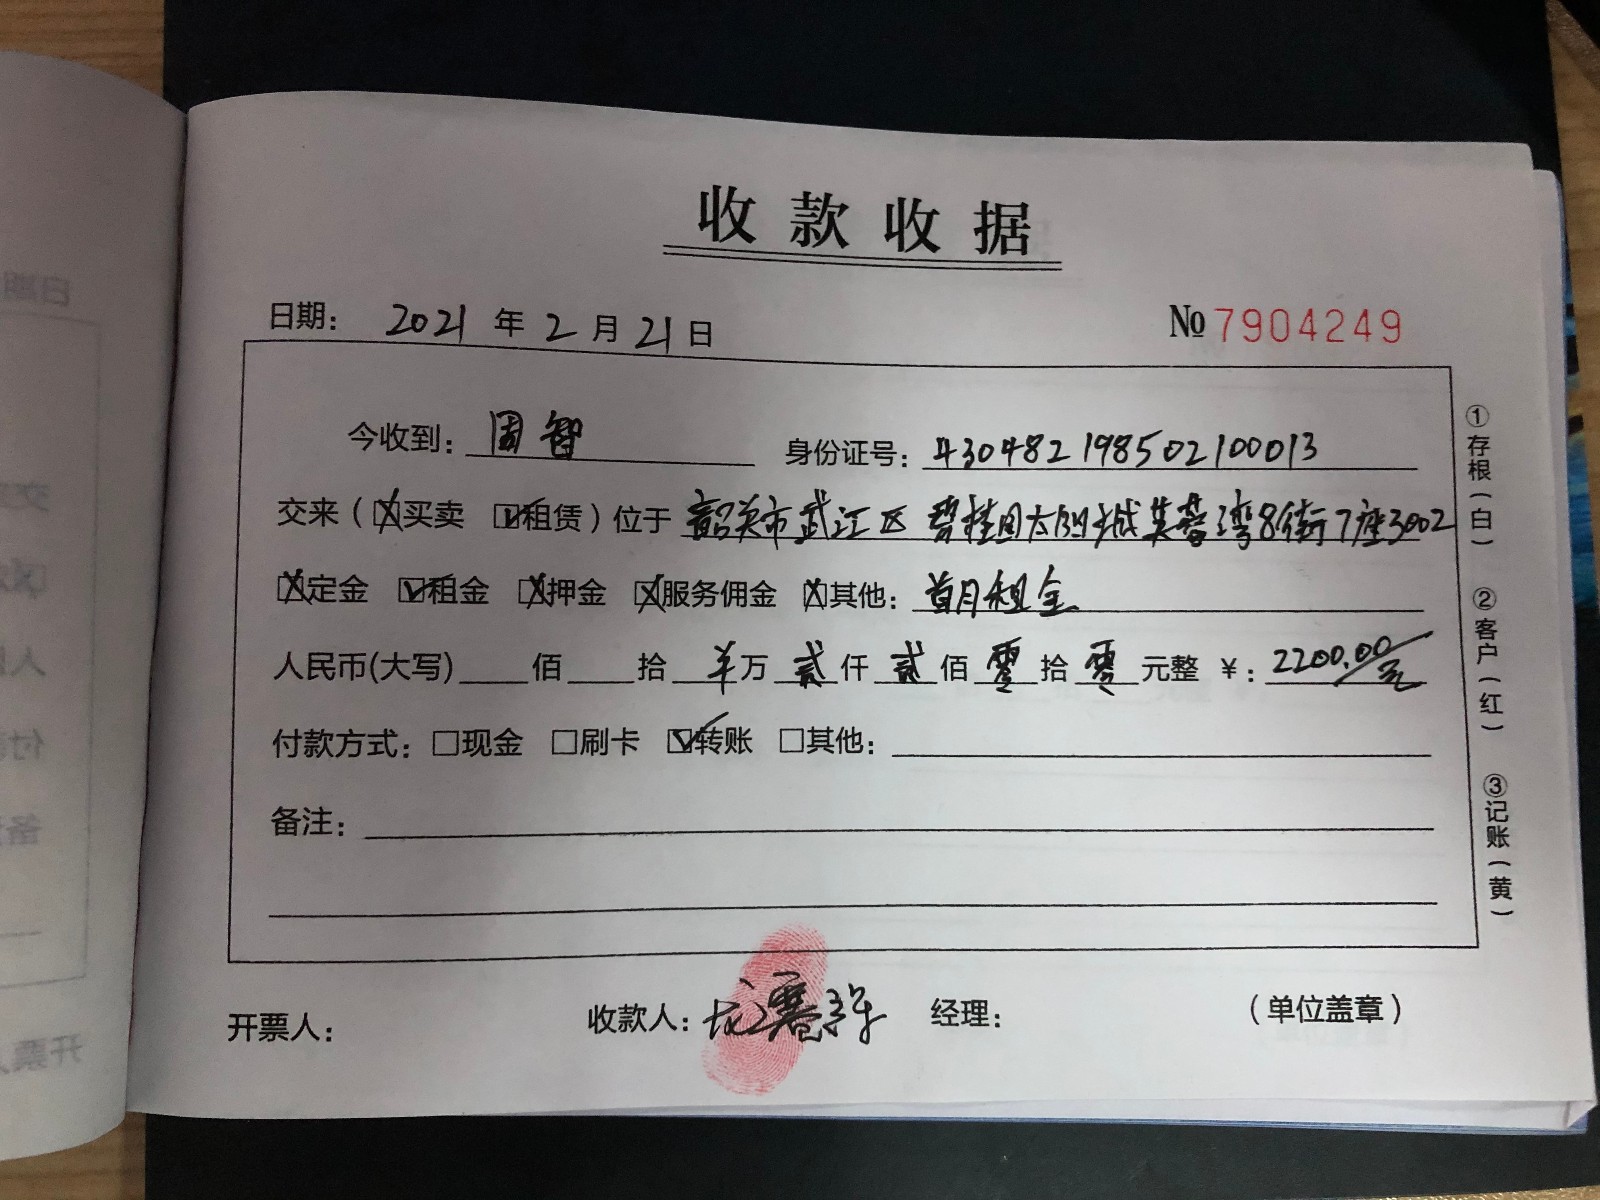 收款收据
日期： 2021 年 2 月 21 日 № 7904249
今收到： 周智 身份证号： 430482198502100013
交来（☒买卖 ☑租赁）位于 韶关市武江区 碧桂园太阳城芙蓉湾8街7座3002
☒定金 ☑租金 ☒押金 ☒服务佣金 ☒其他： 首月租金
人民币(大写) 佰 拾 万 贰 仟 贰 佰 零 拾 零 元整 ￥： 2200.00元
付款方式： □现金 □刷卡 ☑转账 □其他：
备注：
开票人： 收款人： 龙 经理： （单位盖章）
①存根（白）
②客户（红）
③记账（黄）